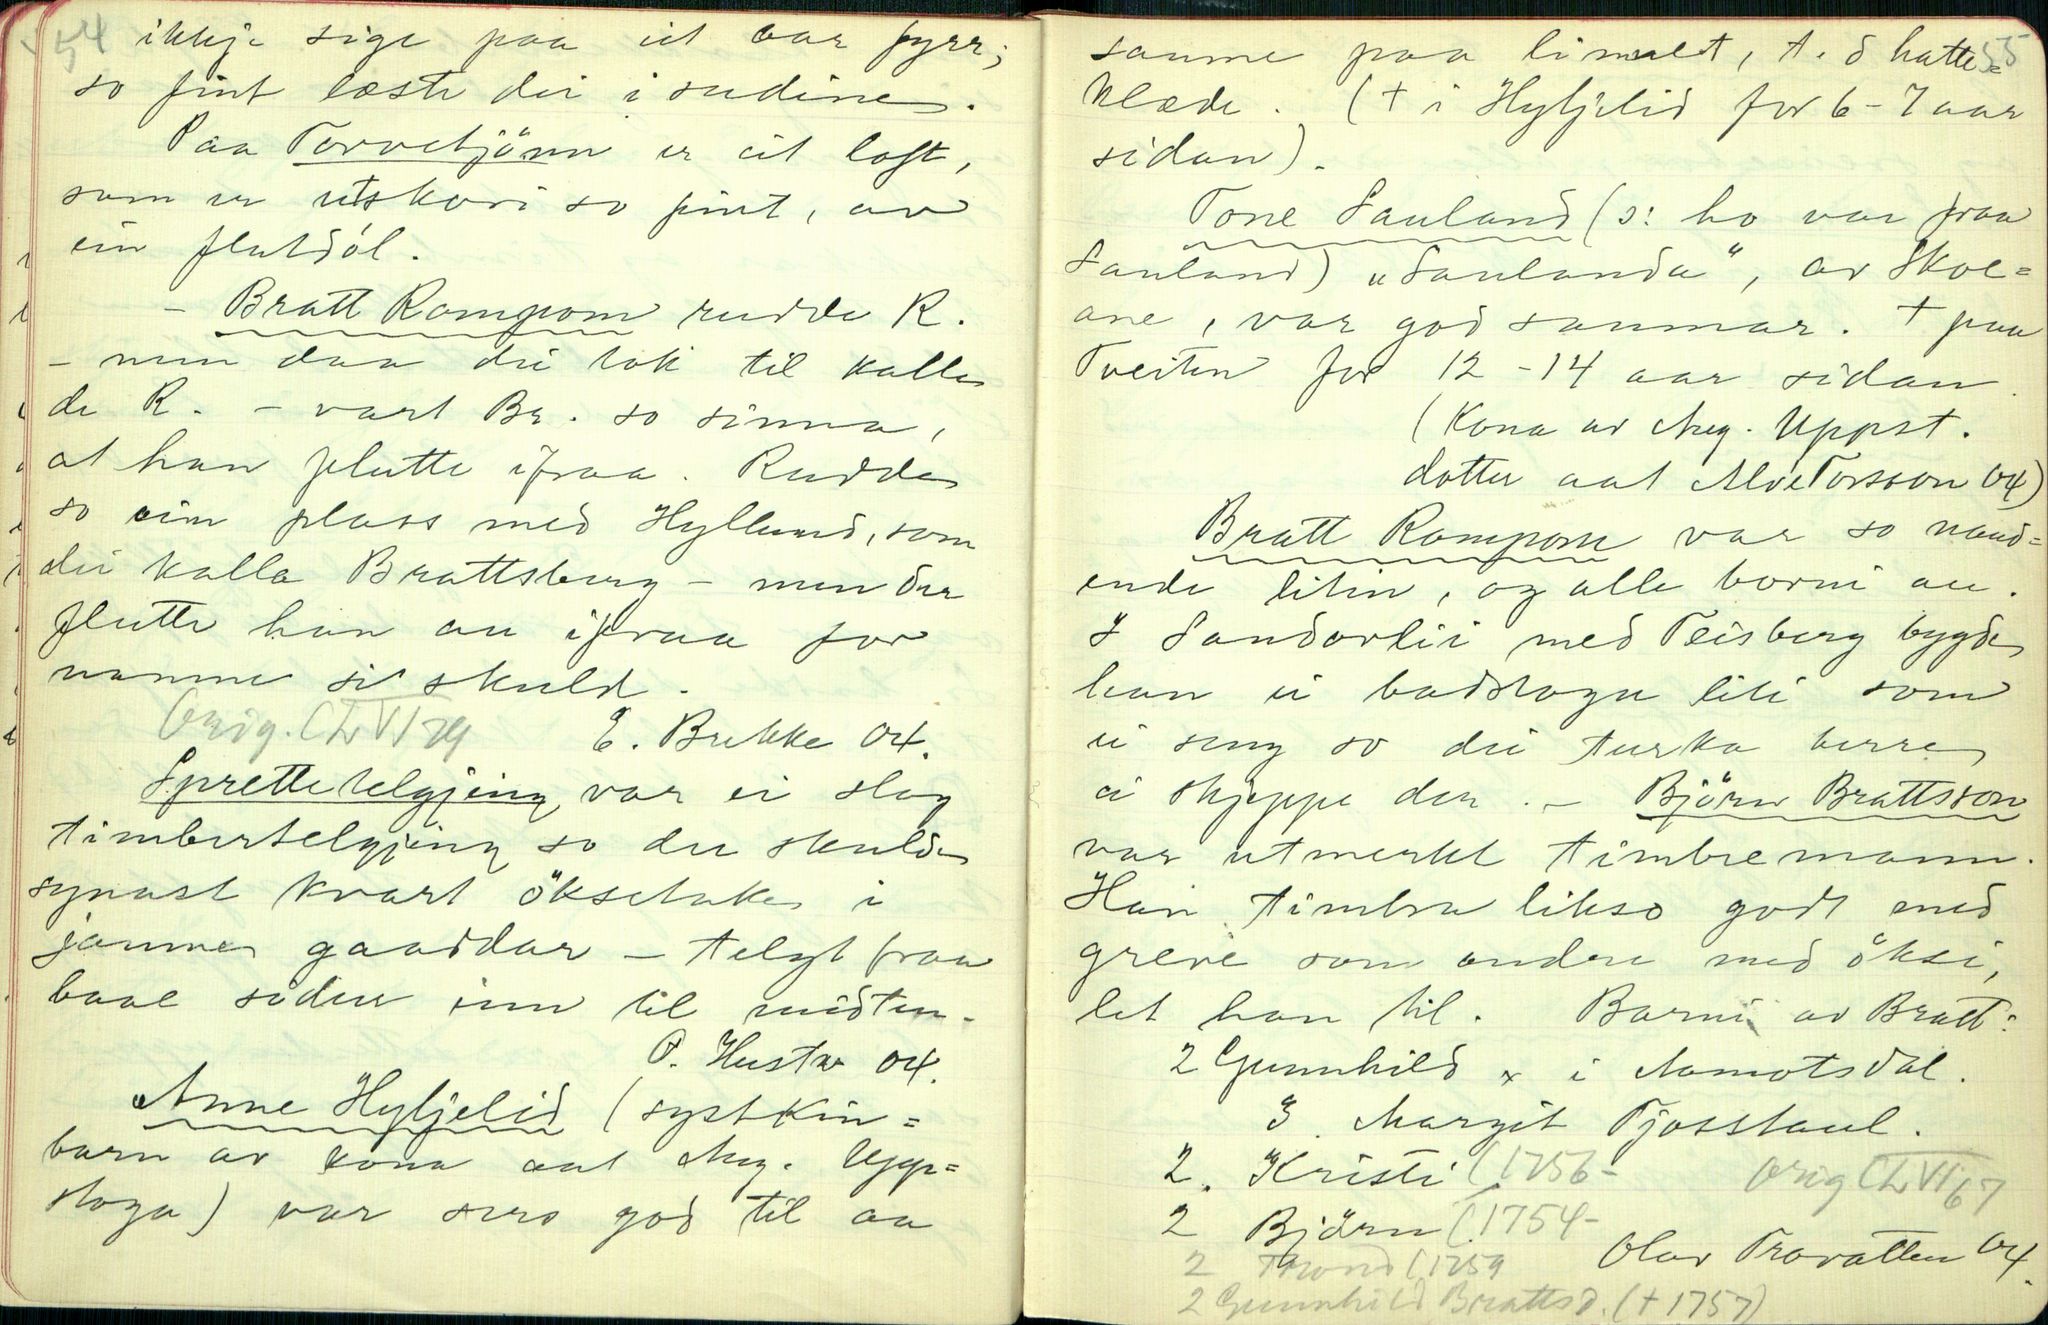 54 ikkje sige paa eit aar fyrr;
so fint læste dei i sudine.
Paa Torvetjönn er eit loft,
som er utskori so fint, av
ein flatdöl.
- Bratt Rompom rudde R.
- men daa dei tok til kalle
de R. - vart Br. so sinna,
at han flutte ifraa. Rudde
so ein plass med Hyllund, som
dei kalla Brattsberg - men der
flutte han au ifraa for
namne si skuld.
Orig. CL VI 79 E. Bekke 04.
Sprettetelgjing var ei slag
timbertelgjing so der skulde
synast kvart öksetak i
jamne gaaddar - telgt fraa
baae sidur inn til midten.
O. Hustv 04.
Anne Hyljelid (systkin=
barn av kona aat Aug. Upp=
stoga) var sers god til aa
55
saume paa limalt, t. d hatte=
klæde. († i Hyljelid for 6-7 aar
sidan).
Tone Sauland (ɔ: ho var fraa
Sauland) "Saulanda", av Skoe=
ane, var god saumar. † paa
Tveiten for 12-14 aar sidan.
(Kona av Aug. Uppst.
dotter aat Alv Torsson 04)
Bratt Rompom var so naud=
ende litin, og alle borni au.
I Sandarlii med Teisberg bygde
han ei badstoga liti som
ei seng so dei turka berre
ei skjeppe der. - Björn Brattsson
var utmerkt timbremann.
Han timbra likso godt med
greve som andre med öksi,
let han til. Barni av Bratt:
2 Gunnhild x i Aamotsdal.
3. Margit Tjosstaul.
2. Kristi (1756- Orig CL VI 67
2 Björn (1754-
2 Trond (1759 Olav Travatten 04.
2 Gunnhild Brattsd. († 1757)